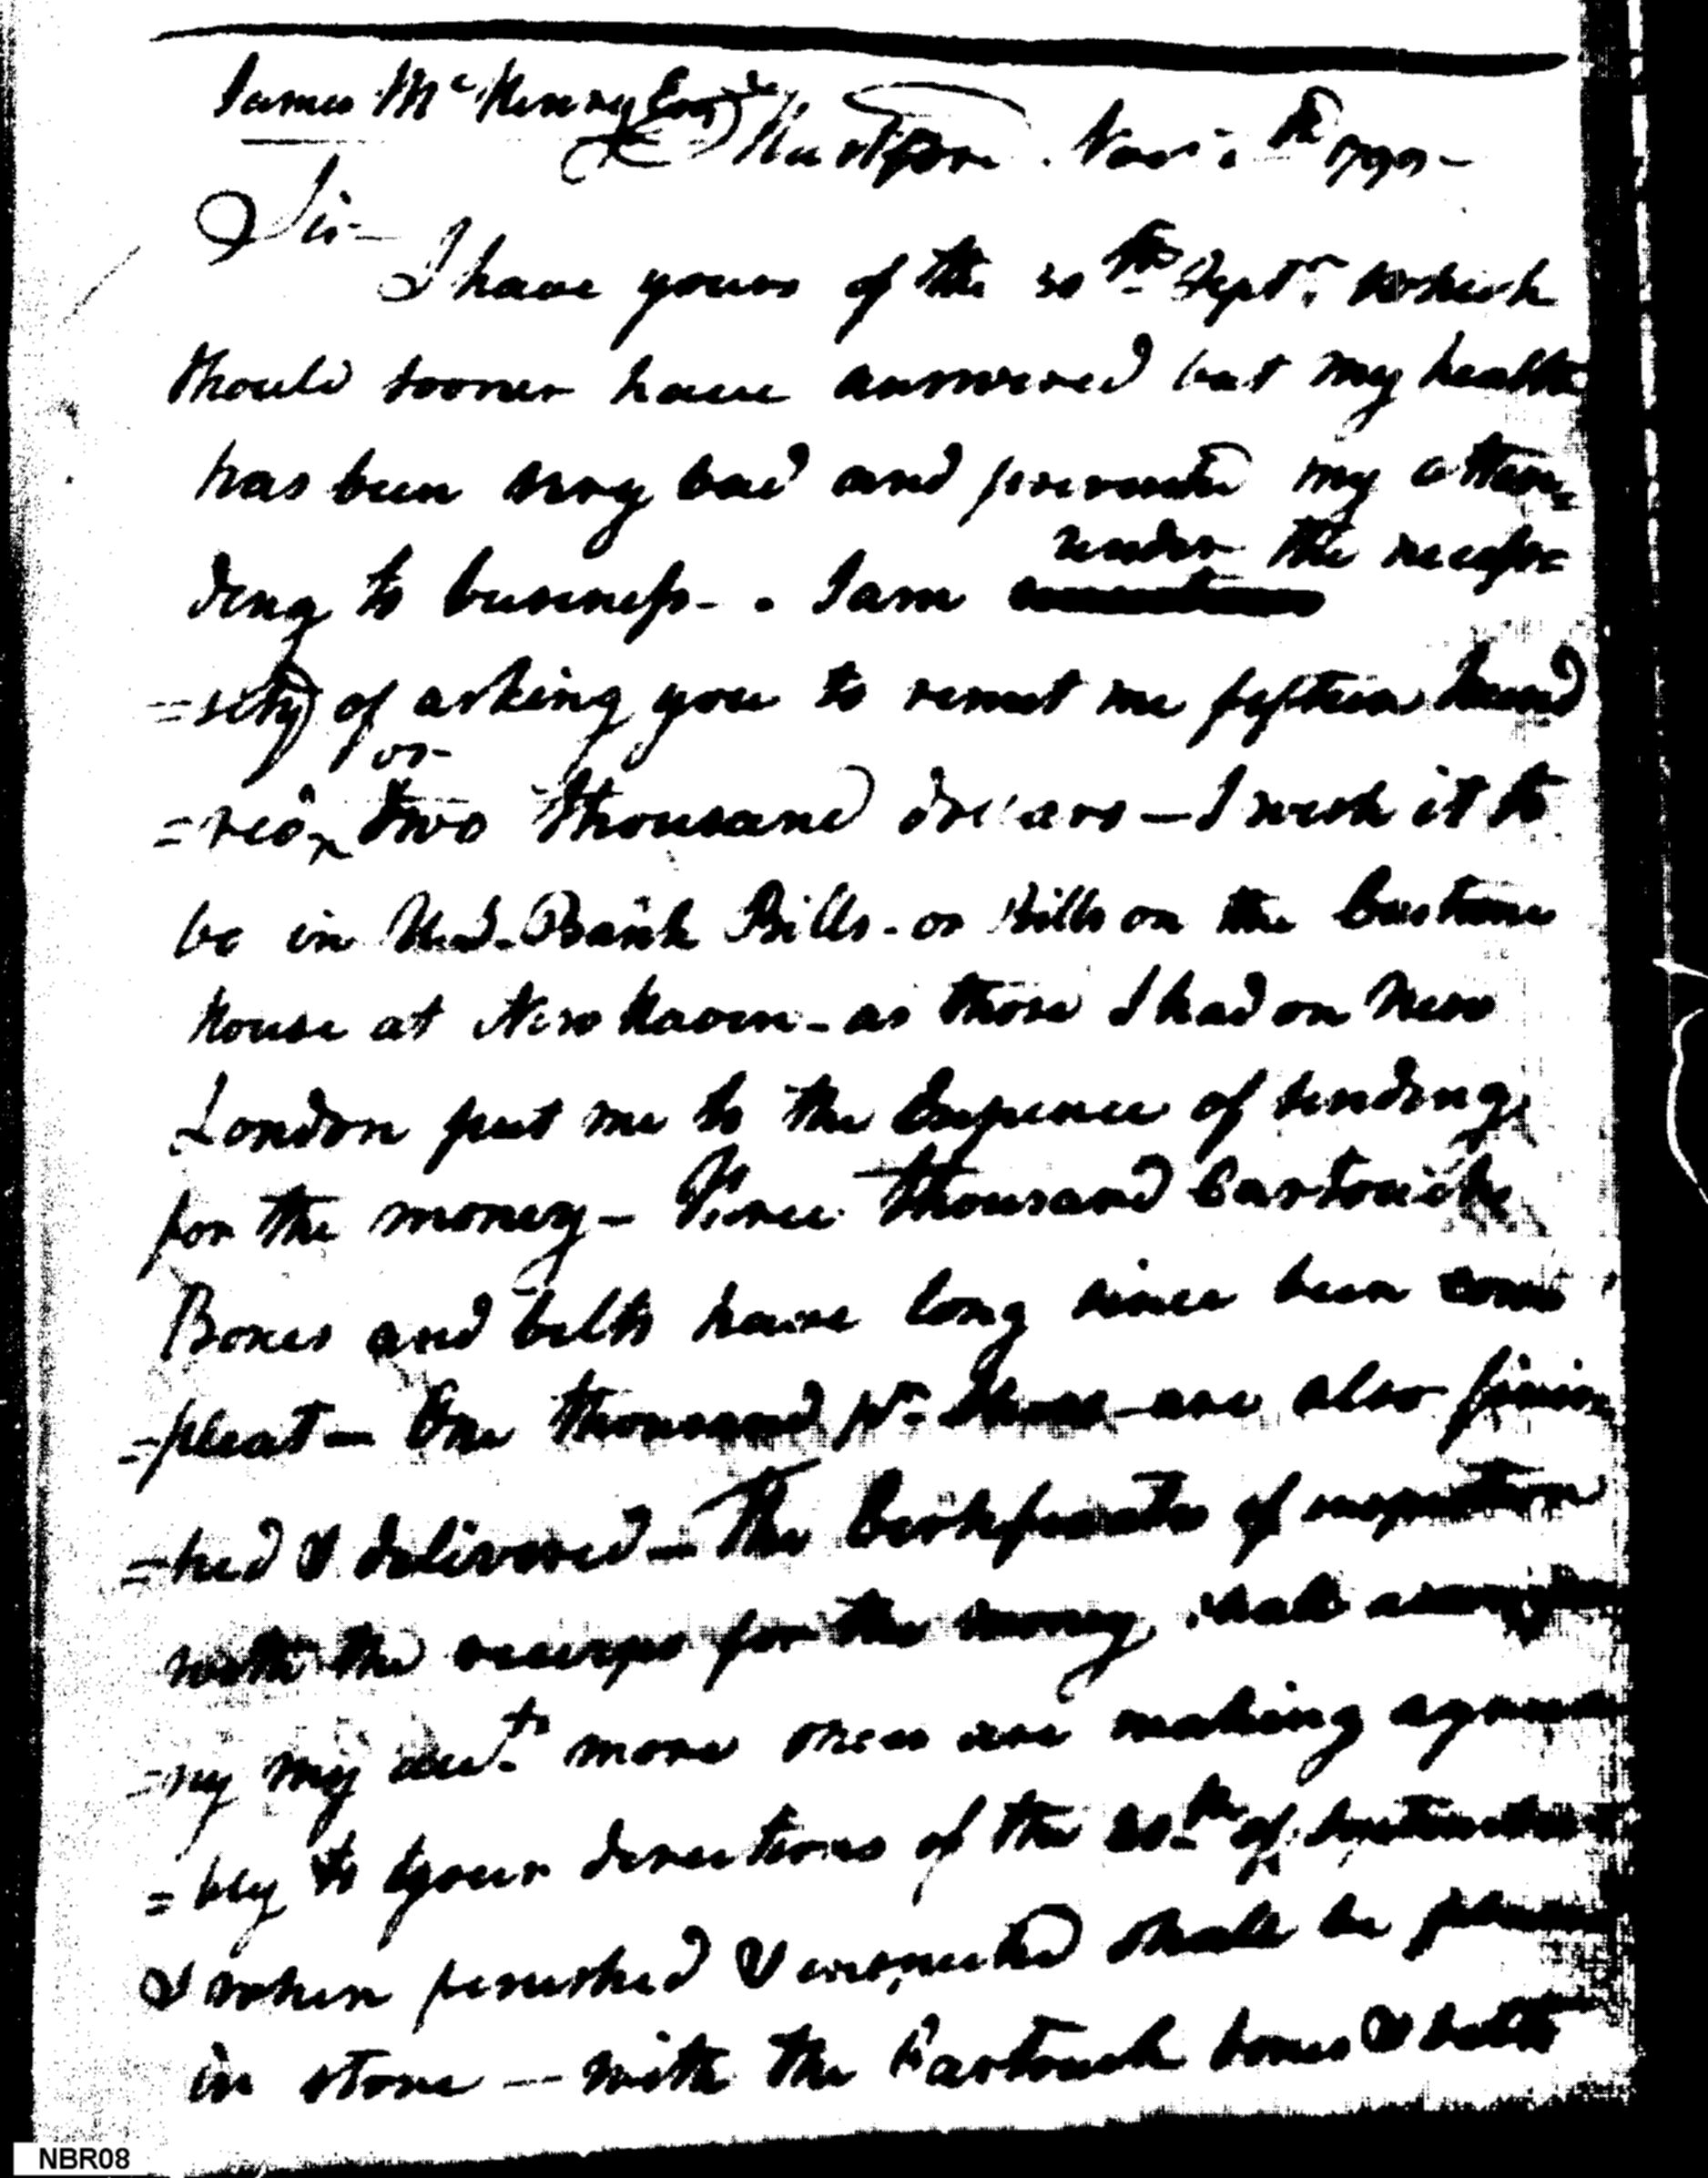 James McHenry Esqr
Hartford Novr. th 1799 -
Sir -
I have yours of the 30th Septr. which
should sooner have answered but my health
has been very bad and prevented my atten=
under the neces=
ding to business - . I am
=sity of asking you to remit me fifteen hund
or
=red two thousand dollars - I wish it to
be in Uned. Bank Bills - or Bills on the Custome
house at New haven - as those I had on New
London put me to the Expence of sending
for the money - Three thousand Cartouch
Boxes and belts have long since been com
=pleat - One thousand pr. Shoes are also finis
=hed & delivered - The Certificates of inspection
with the receipts for the money shall accompa
=ny my acct. more shoes are making agreea
=bly to your directions of the 20th of September
& when finished & inspected shall be placed
in store - with the Cartouch boxes & belts
NBR08